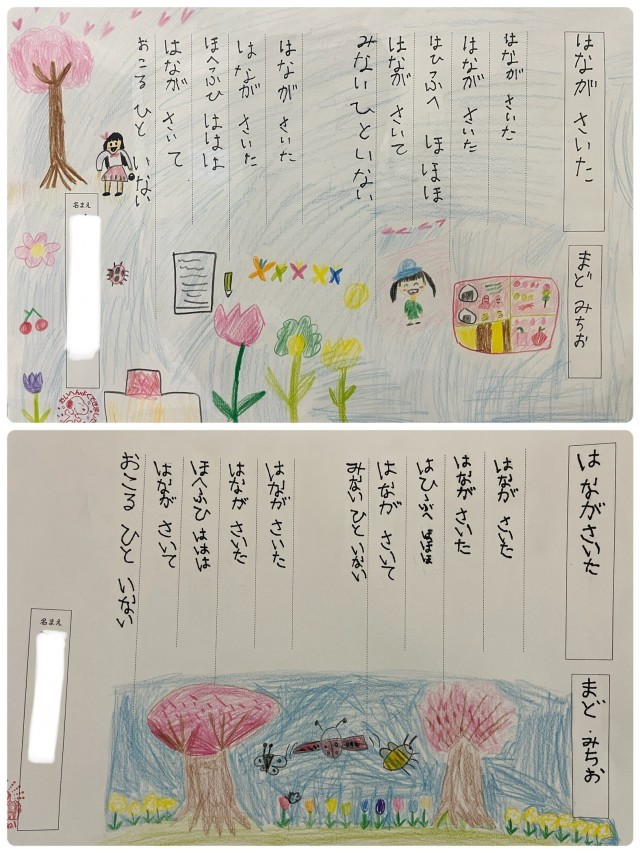 はながさいた
まど みちお
はなが さいた
はなが さいた
はひふへ ほほほ
はなが さいて
みないひと いない
はなが さいた
はなが さいた
ほへふひ ははは
はなが さいて
おこる ひと いない
名まえ
たいへんよくできました
はながさいた
まど・みちお
はなが さいた
はなが さいた
はひふへ ほほほ
はなが さいて
みない ひと いない
はなが さいた
はなが さいた
ほへふひ ははは
はなが さいて
おこる ひと いない
名まえ